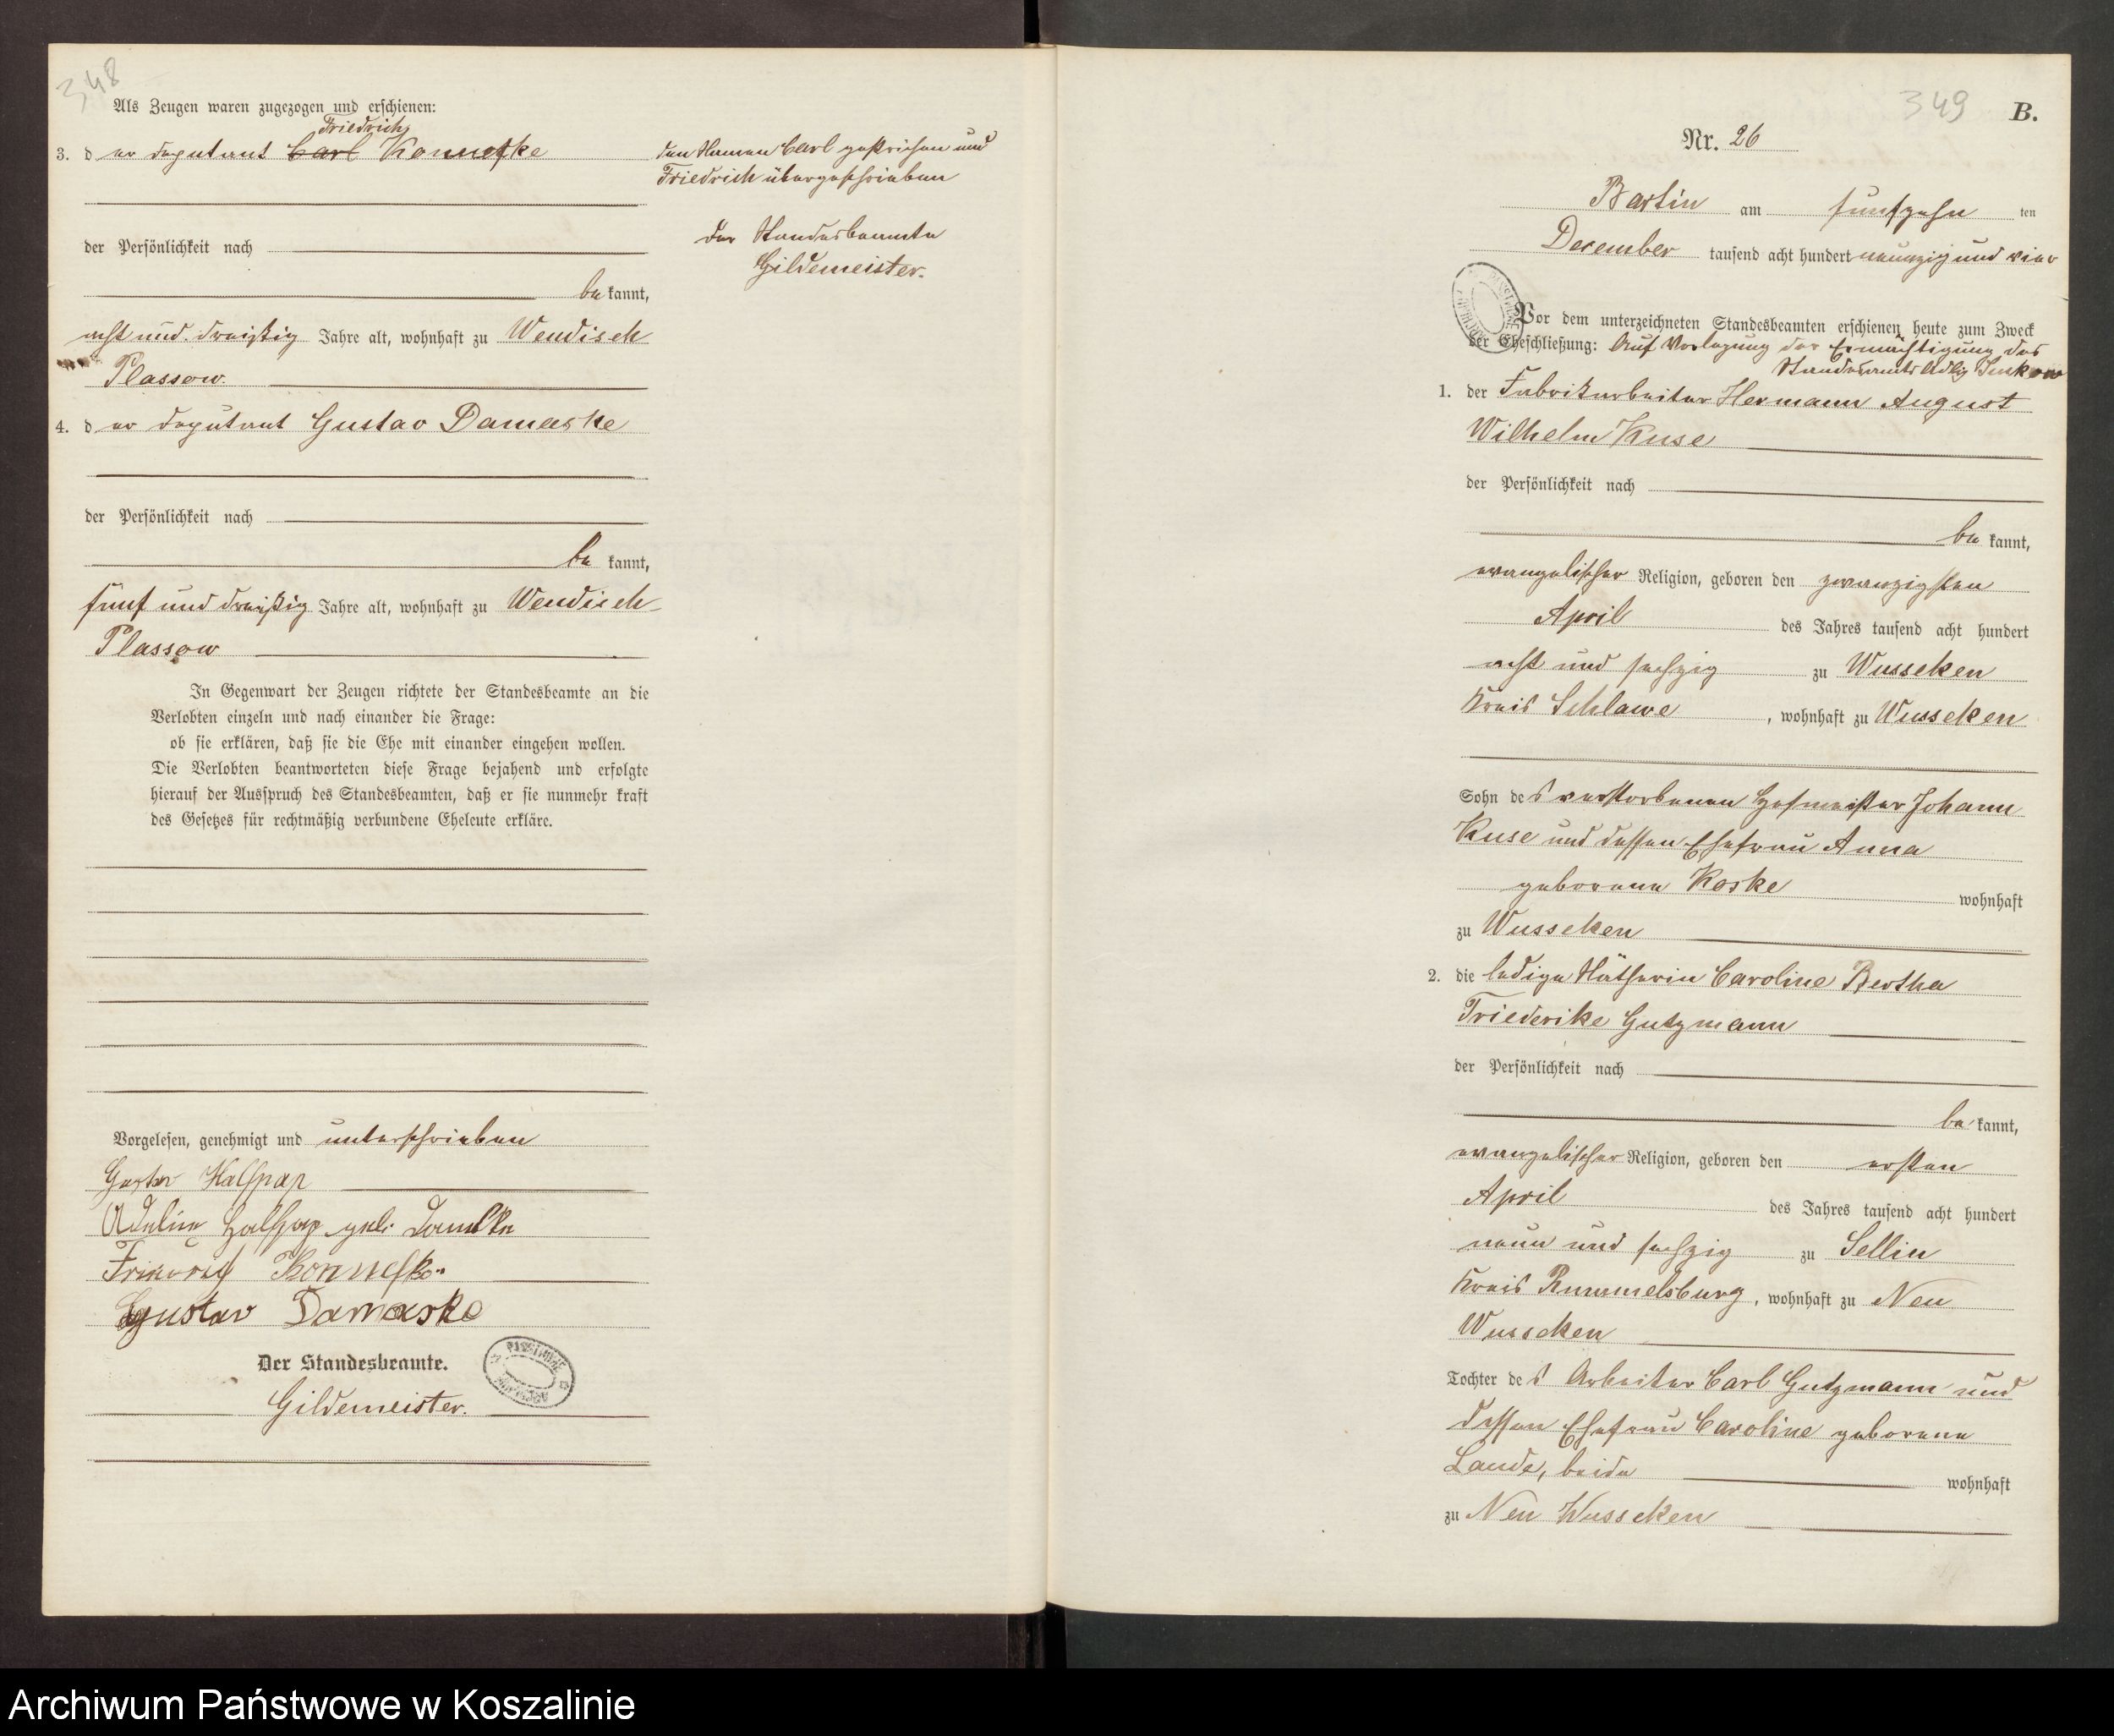 348
Als Zeugen waren zugezogen und erschienen:
Friedrich
3. der Deputant Carl Konnefke
der Persönlichkeit nach
bekannt,
acht und dreißig Jahre alt, wohnhaft zu Wendisch
Plassow.
4. der Deputant Gustav Damaske
der Persönlichkeit nach
bekannt,
fünf und dreißig Jahre alt, wohnhaft zu Wendisch
Plassow
In Gegenwart der Zeugen richtete der Standesbeamte an die
Verlobten einzeln und nach einander die Frage:
ob sie erklären, daß sie die Ehe mit einander eingehen wollen.
Die Verlobten beantworteten diese Frage bejahend und erfolgte
hierauf der Ausspruch des Standesbeamten, daß er sie nunmehr kraft
des Gesetzes für rechtmäßig verbundene Eheleute erkläre.
Vorgelesen, genehmigt und unterschrieben
Gustav Halfpap
Adeline Halfpap geb.
Friedrich Konnefke
Gustav Damaske
Der Standesbeamte.
Gildemeister.
den Namen Carl gestrichen und
Friedrich übergeschrieben
Der Standesbeamte
Gildemeister.
349
B.
Nr. 26
Bartin am fünfzehn ten
December tausend acht hundert neunzig und vier
Vor dem unterzeichneten Standesbeamten erschienen heute zum Zweck
der Eheschließung: Auf Vorlegung der Ermächtigung des
Standesamts Adlig Suckow
1. der Fabrikarbeiter Hermann August
Wilhelm Kuse
der Persönlichkeit nach
bekannt,
evangelischer Religion, geboren den zwanzigsten
April des Jahres tausend acht hundert
acht und sechzig zu Wusseken
Kreis Schlawe, wohnhaft zu Wusseken
Sohn des verstorbenen Hofmeister Johann
Kuse und dessen Ehefrau Anna
geborene Koske wohnhaft
zu Wusseken
2. die ledige Nätherin Caroline Bertha
Friederike Gutzmann
der Persönlichkeit nach
bekannt,
evangelischer Religion, geboren den ersten
April des Jahres tausend acht hundert
neun und sechzig zu Sellin
Kreis Rummelsburg, wohnhaft zu Neu
Wusseken
Tochter des Arbeiter Carl Gutzmann und
dessen Ehefrau Caroline geborene
Lande, beide wohnhaft
zu Neu Wusseken
Archiwum Państwowe w Koszalinie